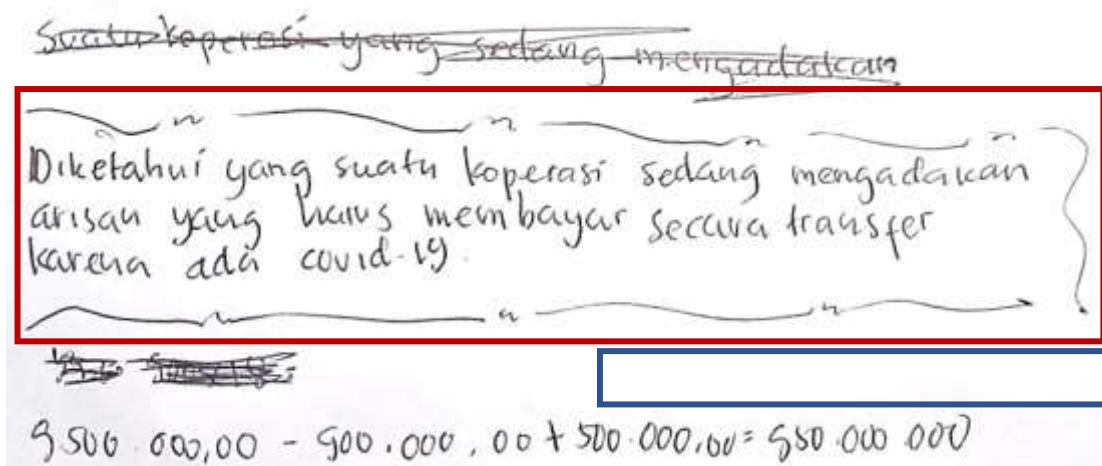 Suatu koperasi yang sedang mengadakan
Diketahui yang suatu koperasi sedang mengadakan
arisan yang harus membayar secara transfer
karena ada covid-19.
9500.000,00 - 500.000,00 + 500.000,00 =